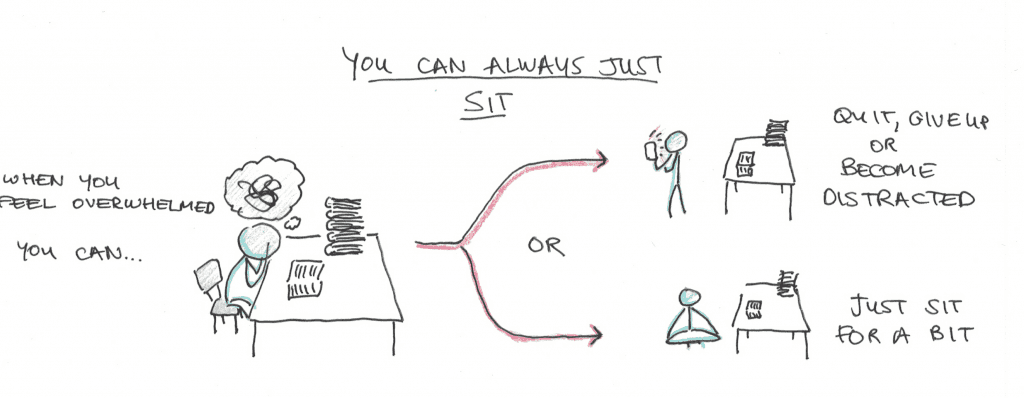 YOU CAN ALWAYS JUST
SIT
WHEN YOU
FEEL OVERWHELMED
YOU CAN...
OR
QUIT, GIVE UP
OR
BECOME
DISTRACTED
JUST SIT
FOR A BIT